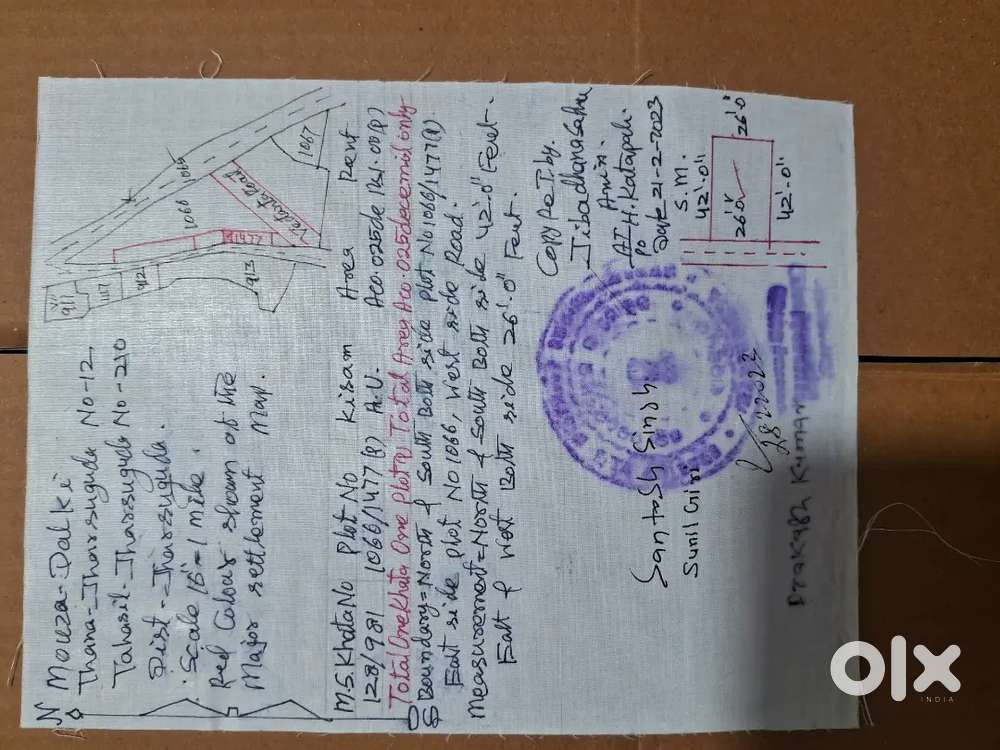 N
Mouza-Dalki
Thana-Jharsuguda No-12
Tahasil-Jharsuguda No-210
Dist-Jharsuguda.
Scale 16"=1 mile.
Red Colour shown of the
Major settlement Map.
911
1117
912
913
1066
1477
1065
1067
M.S. Khata No Plot No Kisam Area Rent
128/981 1066/1477(P) A.U. Ac0.025de
Total One Khata One Plot(P) Total Area Ac0.025decemil only
Boundary=North & South Both side plot No 1066/1477(P)
East side plot No 1066, West side Road.
Measurement=North & South Both side 42'-0" Feet.
East & West Both side 26'-0" Feet.
Copy Pe I. by.
Jibadhana Sahu
Amin.
AT/H. Katapali
Po
Date 21-2-2023
S.M.
42'-0"
26'-0"
42'-0"
26'-0"
Santosh Sindh
Sunil Giri
28 2 2023
Prakash Kumar
olx
INDIA